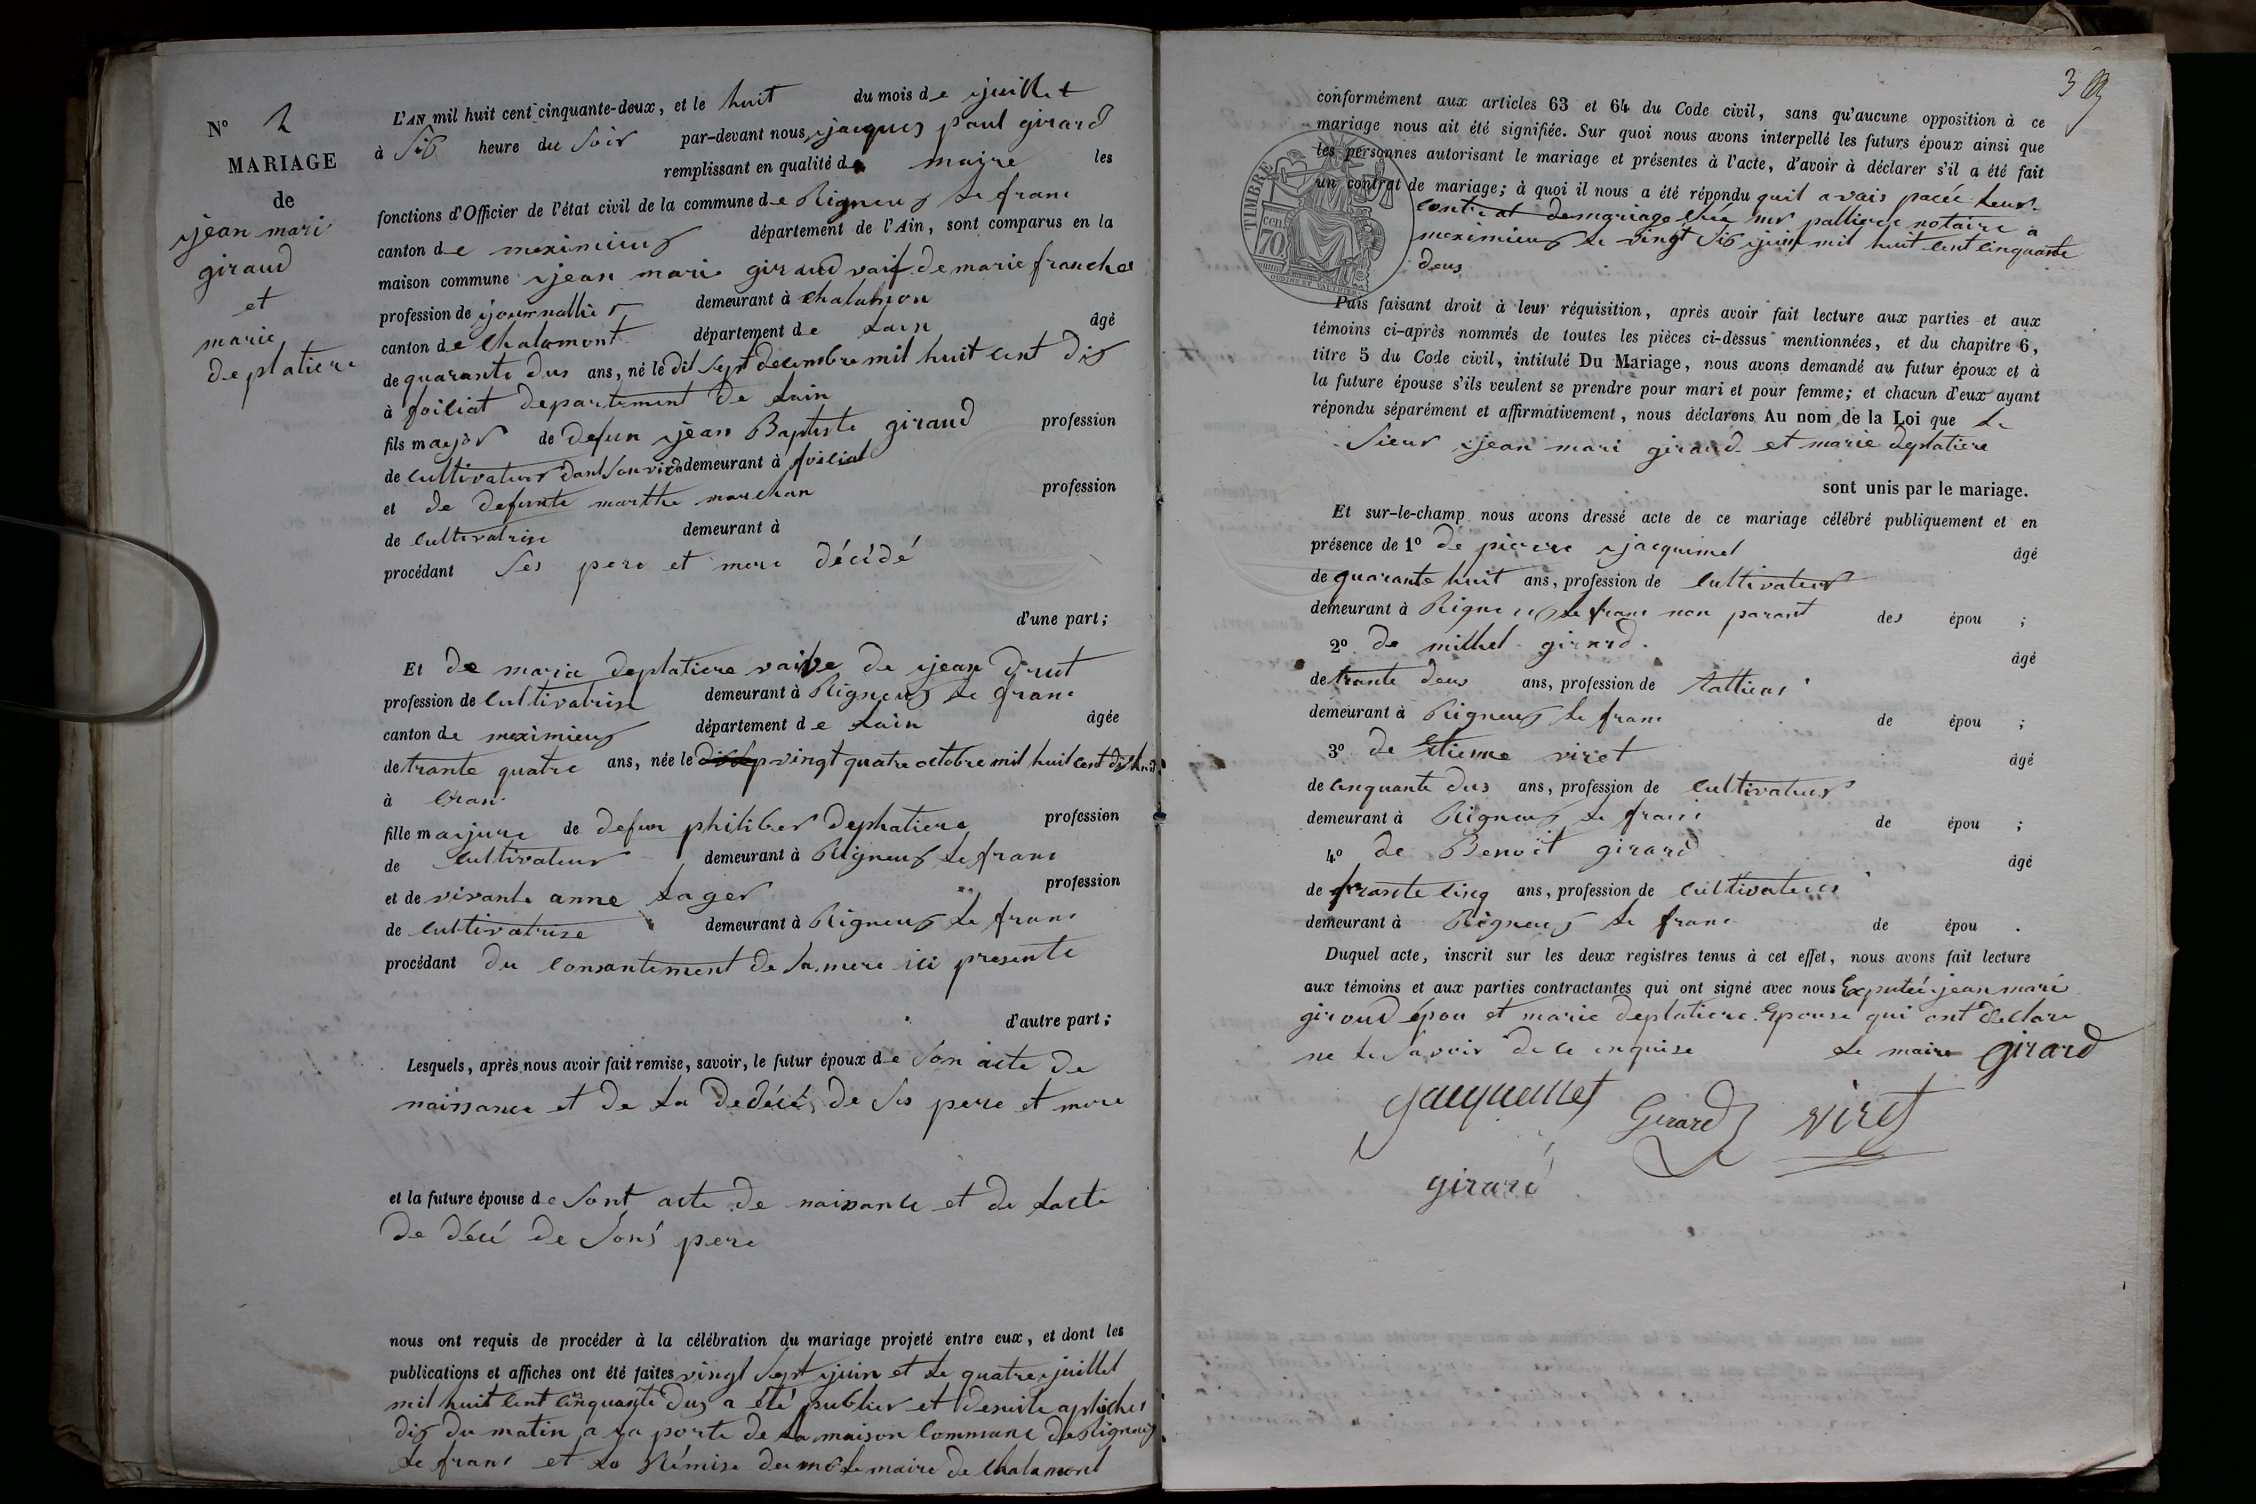 N° 2
MARIAGE
de
jean mari
giraud
et
marie
deplatiere
L'AN mil huit cent cinquante-deux, et le huit du mois de juillet
à six heure du soir par-devant nous jacques paul girard
remplissant en qualité de maire les
fonctions d'Officier de l'état civil de la commune de Rigneux le franc
canton de meximieux département de l'Ain, sont comparus en la
maison commune jean mari giraud vaif de marie franches
profession de journallier demeurant à chalamon
canton de Chalamont département de Lain âgé
de quarante dus ans, né le dit sept decembre mil huit cent dix
à foiliat departement de Lain
fils major de defun jean Baptiste giraud profession
de cultivateur dant son vivan demeurant à foiliat
et de defunte marthe marchan profession
de cultivatrise demeurant à
procédant ses pere et mere décédé
d'une part;
Et de marie deplatiere vaive de jean drut
profession de cultivatrise demeurant à Rigneux le franc
canton de meximieux département de Lain âgée
de trante quatre ans, née le vingt quatre octobre mil huit cent dix huit
à Cran
fille majure de defun philiber deplatiere profession
de cultivateur demeurant à Rigneux le franc
et de vivante anne Lager profession
de cultivatrise demeurant à Rigneux le franc
procédant du consantement de sa mere ici presente
d'autre part;
Lesquels, après nous avoir fait remise, savoir, le futur époux de son acte de
naissance et de la dedécés de ses pere et mere
et la future épouse de sont acte de naissance et de lacte
de décé de sons pere
nous ont requis de procéder à la célébration du mariage projeté entre eux, et dont les
publications et affiches ont été faites vingt sept juin et le quatre juillet
mil huit cent cinquante dux a été publier et desuite aphiches
dix du matin a la porte de la maison Commune de Rigneux
le franc et la Rémise de mr le maire de Chalamont
3
conformément aux articles 63 et 64 du Code civil, sans qu'aucune opposition à ce
mariage nous ait été signifiée. Sur quoi nous avons interpellé les futurs époux ainsi que
les personnes autorisant le mariage et présentes à l'acte, d'avoir à déclarer s'il a été fait
un contrat de mariage; à quoi il nous a été répondu quil avais pacée leur
contrat de mariage chée mr pallierce notaire a
meximieux le vingt six juin mil huit cent cinquante
deux
TIMBRE
70 cen
Puis faisant droit à leur réquisition, après avoir fait lecture aux parties et aux
témoins ci-après nommés de toutes les pièces ci-dessus mentionnées, et du chapitre 6,
titre 5 du Code civil, intitulé Du Mariage, nous avons demandé au futur époux et à
la future épouse s'ils veulent se prendre pour mari et pour femme; et chacun d'eux ayant
répondu séparément et affirmativement, nous déclarons Au nom de la Loi que le
sieur jean mari giraud et marie deplatiere
sont unis par le mariage.
Et sur-le-champ nous avons dressé acte de ce mariage célébré publiquement et en
présence de 1° de pierre jacquimet âgé
de quarante huit ans, profession de cultivateur
demeurant à Rigneux le franc non parant des épou ;
2° de michel girard âgé
de trante deux ans, profession de
demeurant à Rigneux le franc de épou ;
3° de Etienne viret âgé
de cinquante dus ans, profession de cultivateur
demeurant à Rigneux le franc de épou ;
4° de Benoit girard âgé
de trante cinq ans, profession de cultivateur
demeurant à Rigneux le franc de épou .
Duquel acte, inscrit sur les deux registres tenus à cet effet, nous avons fait lecture
aux témoins et aux parties contractantes qui ont signé avec nous Exputée jean mari
giroud épou et marie deplatiere Epouse qui ont declare
ne le savoir de ce enquise le maire girard
jacquemet Girard viret
girard